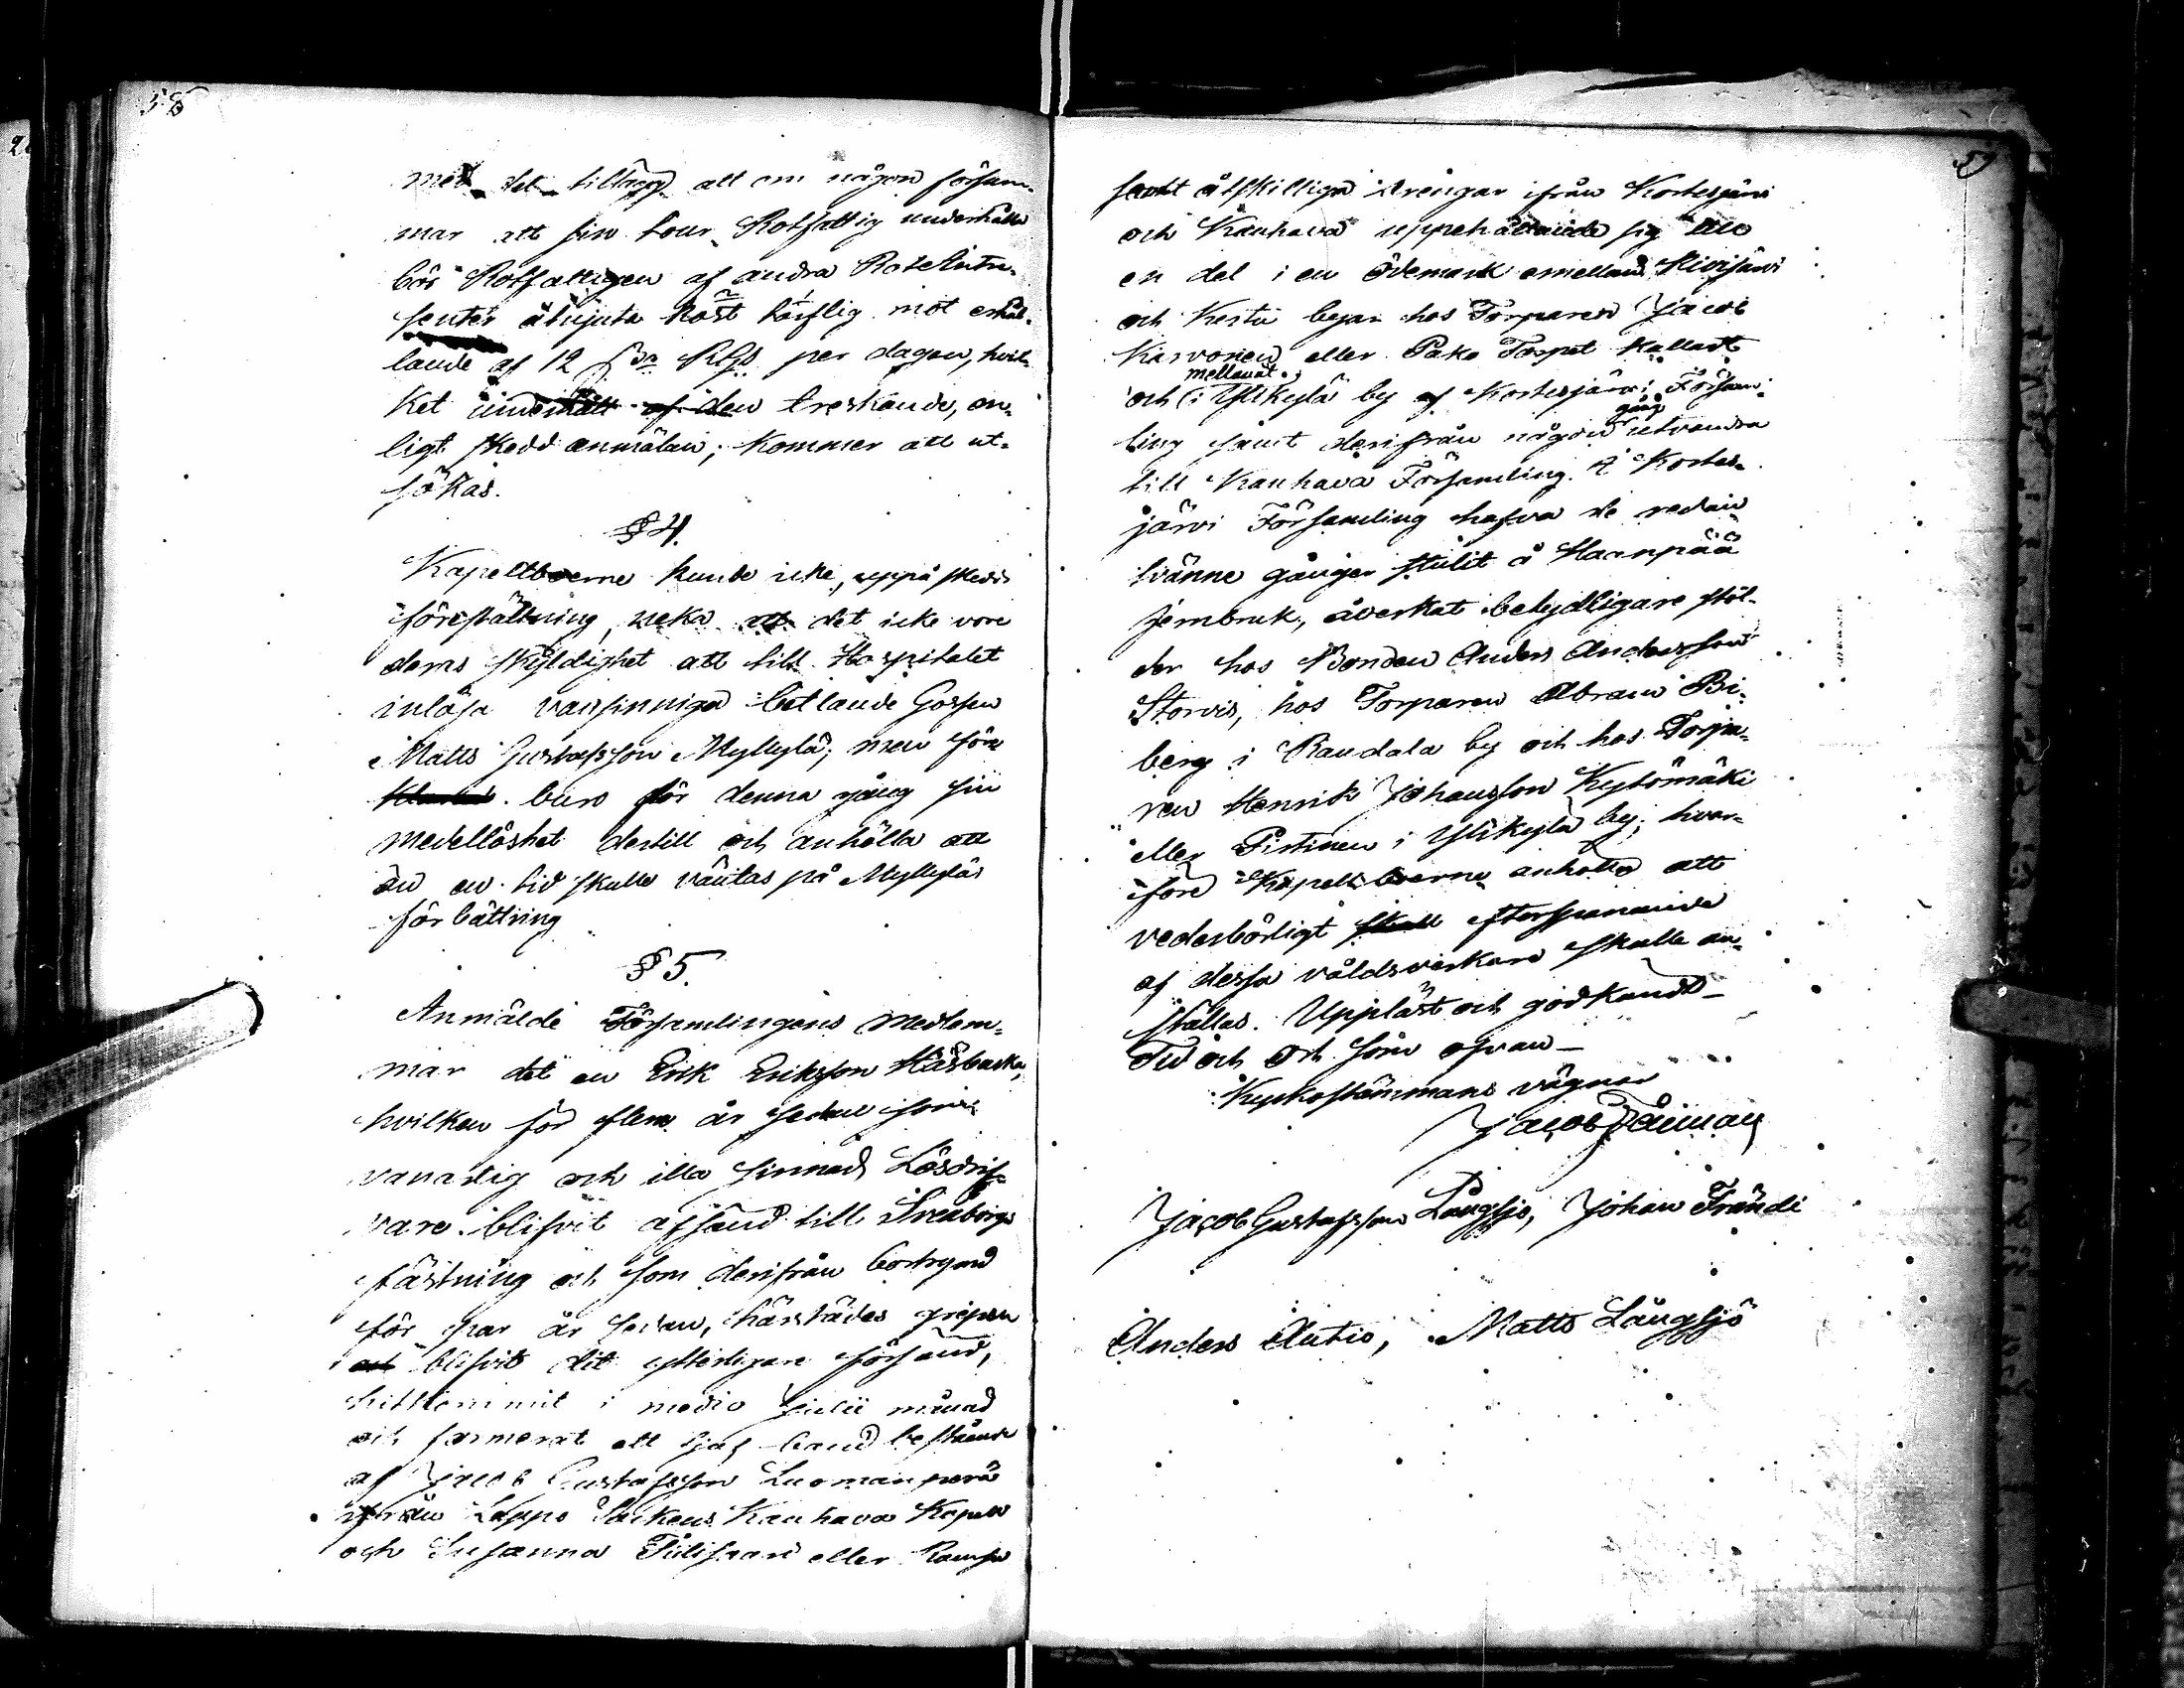 58
med det tillägg att om någon försum-
mar att sin tour Rotfattig underhålla
bör Rotfattigen af andra Rote Intres-
senter åtnjuta kost tarflig mot erhål-
lande af 12 RGS per dagen, hvil-
ket underhåll af den treskande, en-
ligt skedd anmälan, kommer att ut-
sökas.
§ 4.
Kapellboerne kunde icke, uppå skedd
föreställning, neka att det icke vore
dems skyldighet att till Hospitalet
inlösa vansinniga betlande Gossen
Matts Gustafsson Myllylä; men före
buro för denna gång sin
medellöshet dertill och anhölla att
än en tid skulle väntas på Myllyläs
förbättring
§ 5.
Anmälde Församlingens medlem-
mar det en Erik Eriksson Håsbacka,
hvilken för flera år sedan som
vanartig och illa sinnad Lösdrif-
vare blifvit afsänd till Sveaborgs
fästning och som derifrån bortrymd
för par år sedan, härstädes gripen
och blifvit dit ytterligare försänd,
hitkommit i medio Julii månad
och formerat ett tjuf band bestående
af Jacob Gustafsson Luomanperä
ifrån Lappo Sockens Kauhava Kapell
och Susanna Tiilisaari eller Kamp

59
samt åtskilliga drängar ifrån Kortesjärvi
och Kauhava uppehållande sig till
en del i en ödemark emellan Kivijärvi
och Kerttu byar hos Torparen Jacob
Karvonen eller Pako Torpet kalladt
mellanåt
och i Ylikylä by af Kortesjärvi Försam-
gång
ling samt derifrån någon utvandra
till Kauhava Församling. I Kortes-
järvi Församling hafva de redan
tvänne gånger stulit å Haanpää
jernbruk, åverkat betydligare stöl-
der hos Bonden Anders Andersson
Storvis, hos Torparen Abram Bi-
berg i Raudala by och hos Torpa-
ren Henrik Johansson Kytömäki
eller Pistinen i Ylikylä by; hvar-
före Kapellboerne anhölla att
vederbörligt skall efterspanande
af dessa våldsverkare skulle an-
ställas. Uppläst och godkändt
Tid och Ort som ofvan
Kyrkostämmans vägnar
Jacob
Jacob Gustafsson Långsjö, Johan Frändi
Anders Autio, Matts Långsjö